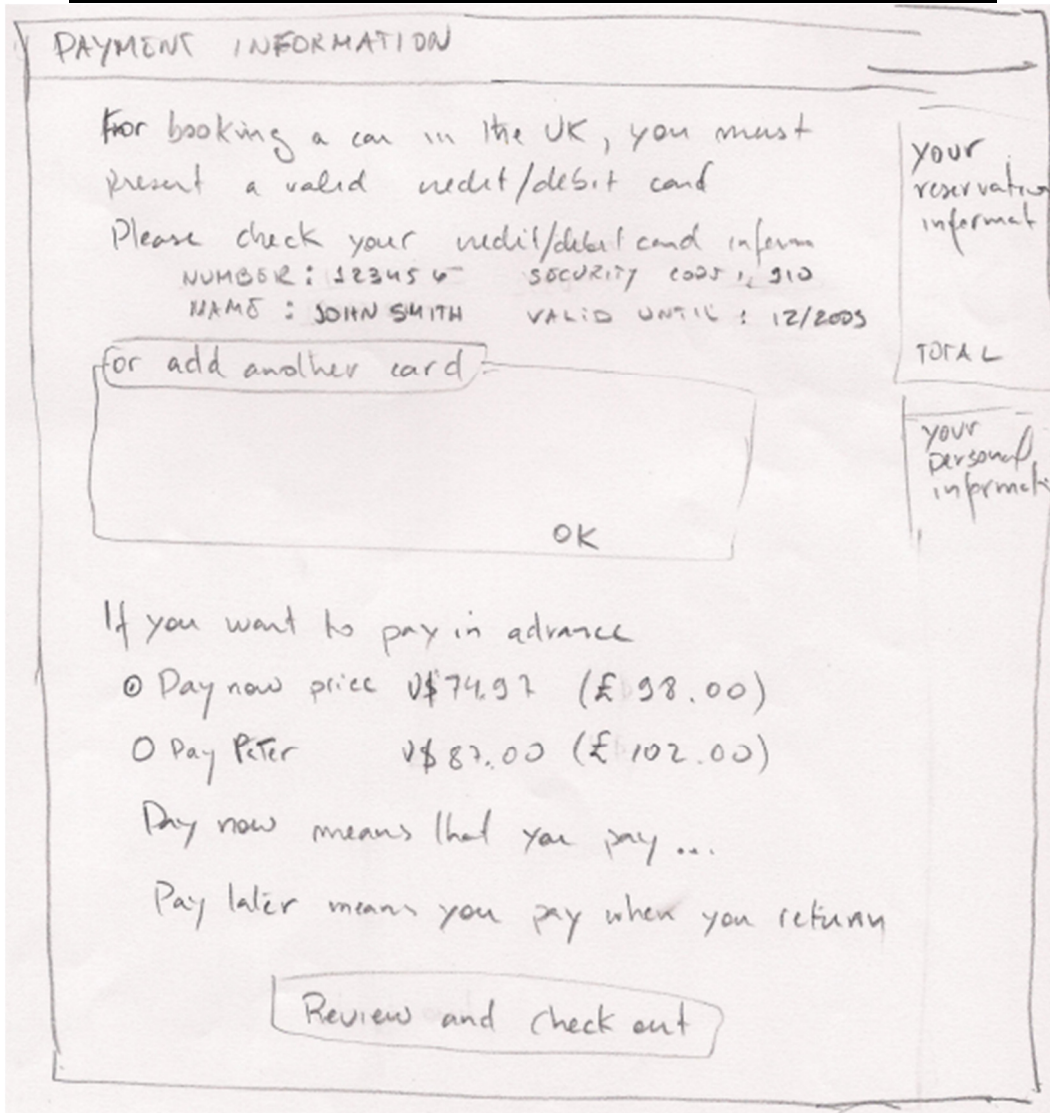 PAYMENT INFORMATION
For booking a car in the UK, you must
present a valid credit/debit card
Please check your credit/debit card inform
NUMBER: 123456
SECURITY CODE: 910
NAME: JOHN SMITH
VALID UNTIL: 12/2009
or add another card
OK
If you want to pay in advance
Pay now price U$74.97 (£ 98.00)
Pay later U$87.00 (£ 102.00)
Pay now means that you pay...
Pay later means you pay when you return
Review and check out
your
reservation
informat
TOTAL
your
personal
informati